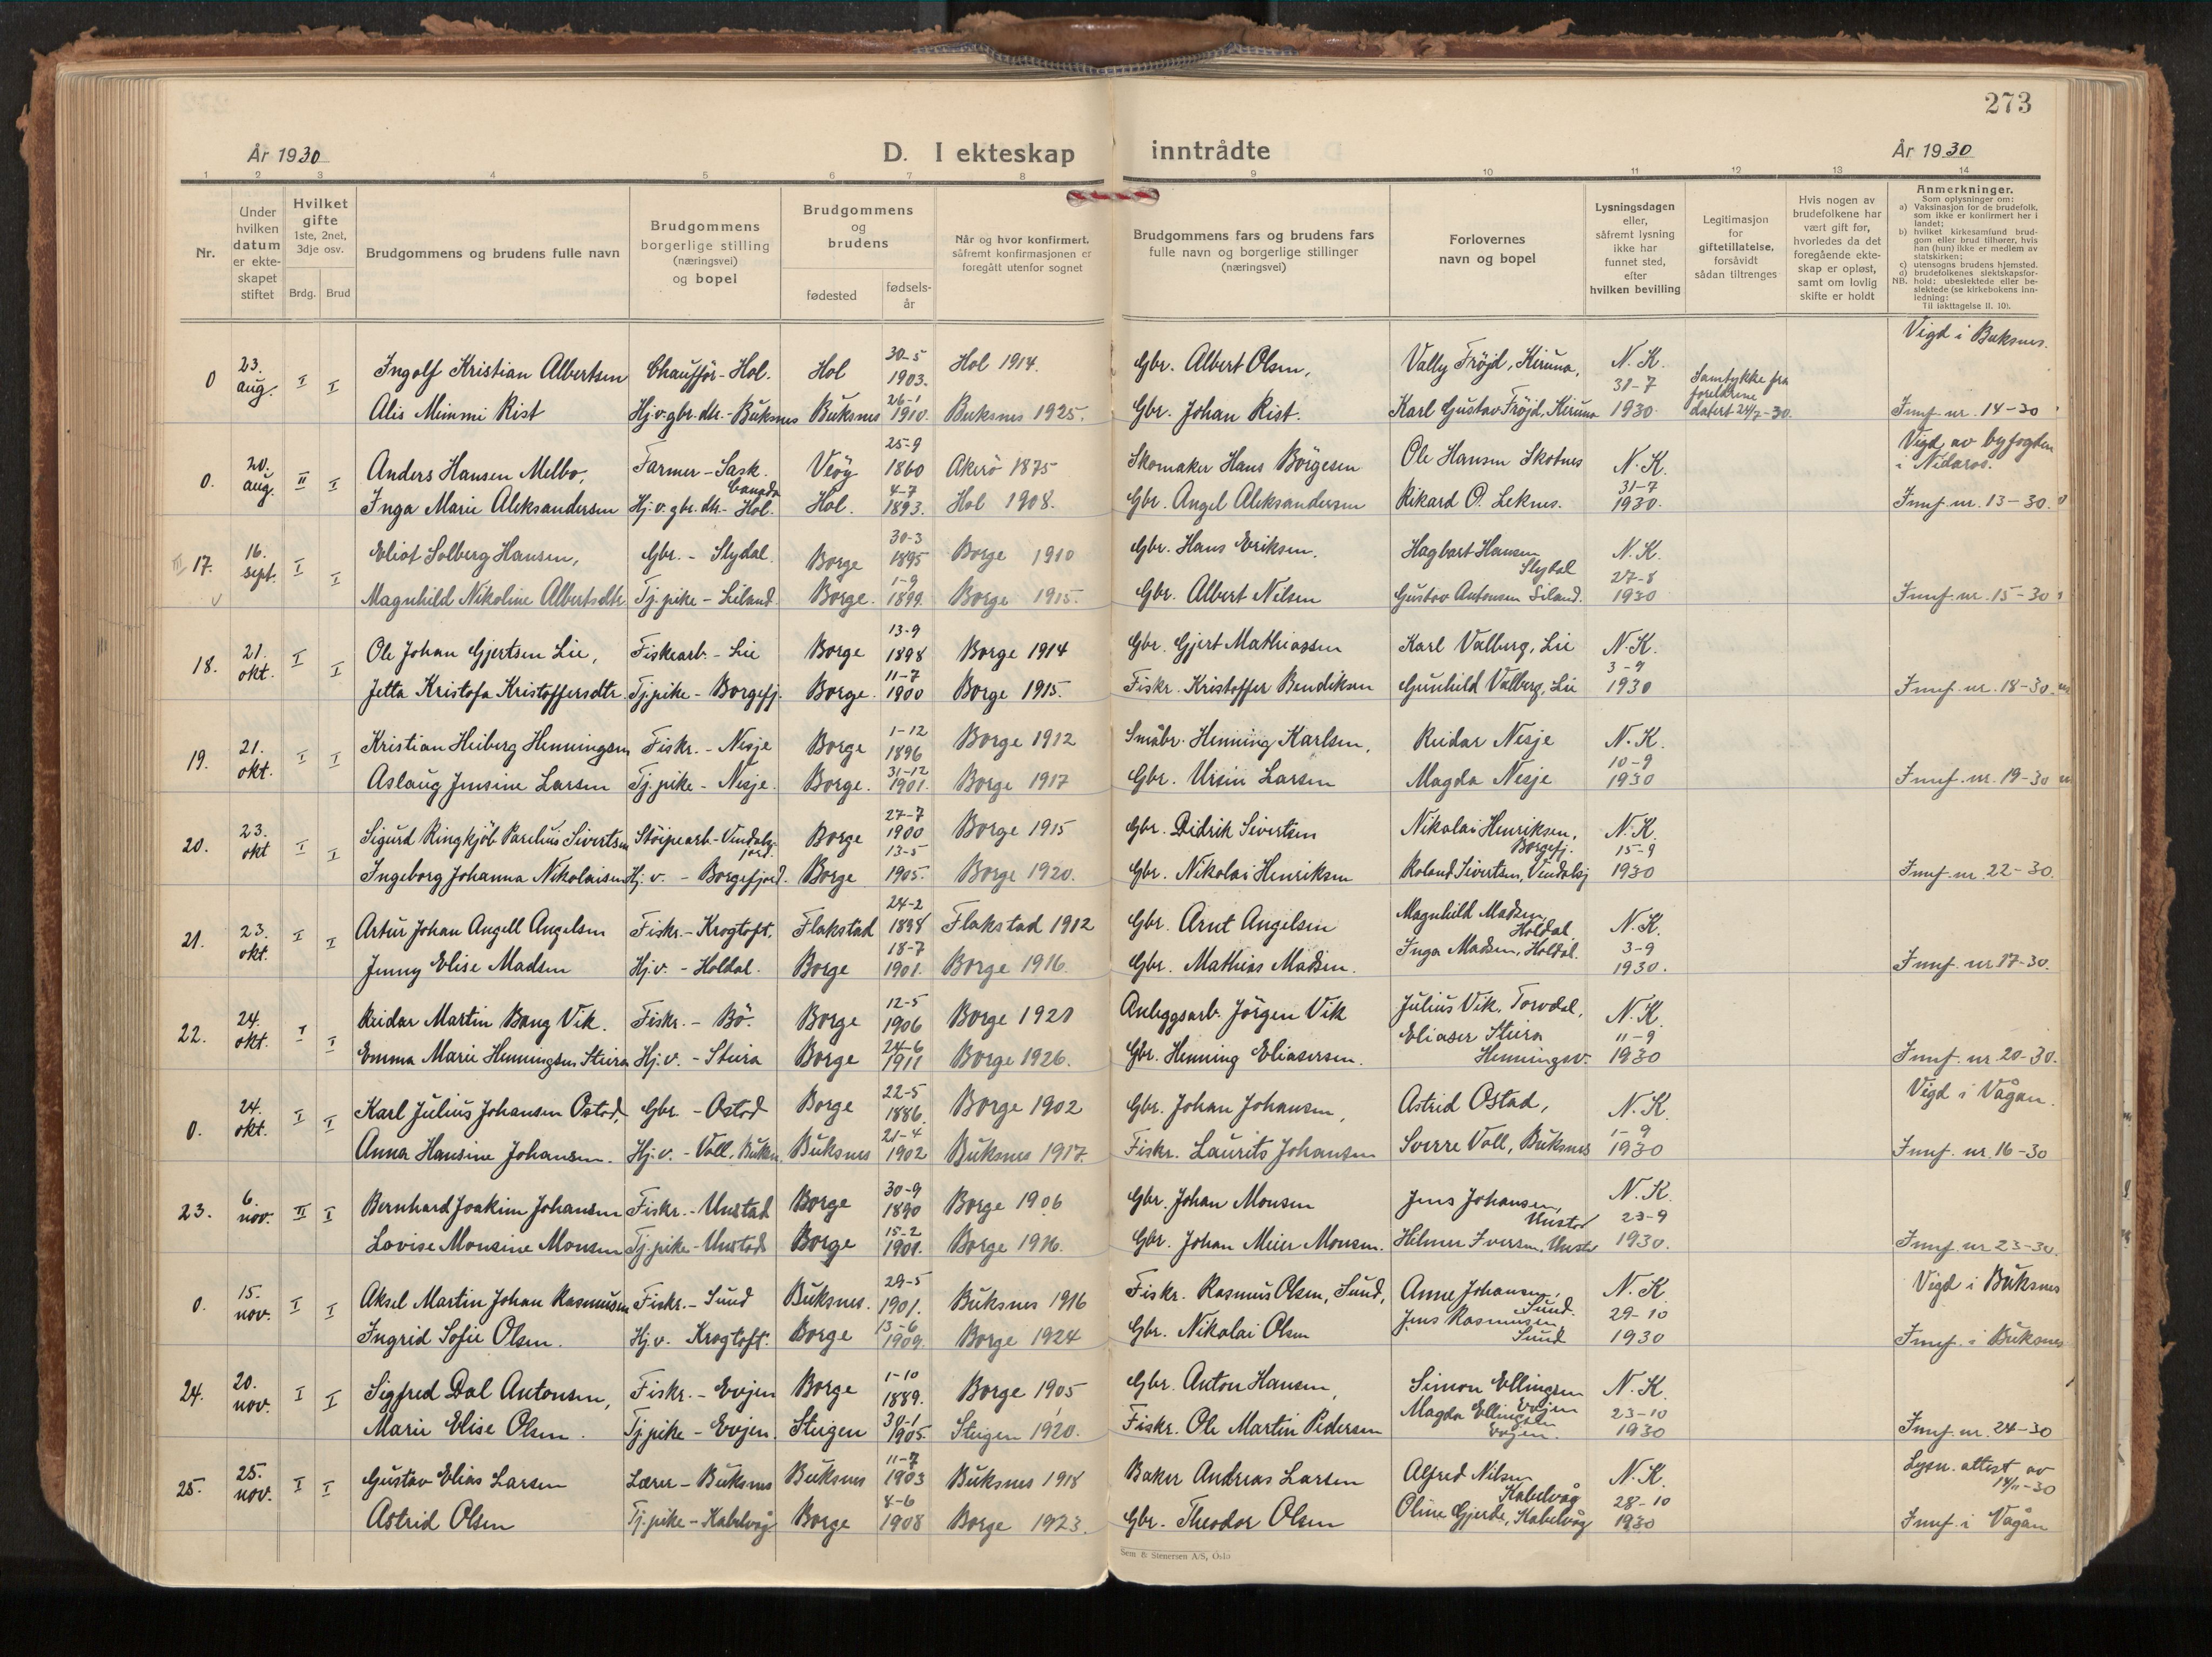 273
År 1930
D. I ekteskap inntrådte
År 1930
1 2 3 4 5 6 7 8 9 10 11 12 13 14
Nr.
Under
hvilken
datum
er ekte-
skapet
stiftet
Hvilket
gifte
1ste, 2net,
3dje osv.
Brdg. Brud
Brudgommens og brudens fulle navn
Brudgommens
borgerlige stilling
(næringsvei)
og bopel
Brudgommens
og
brudens
fødested
fødsels-
år
Når og hvor konfirmert.
såfremt konfirmasjonen er
foregått utenfor sognet
Brudgommens fars og brudens fars
fulle navn og borgerlige stillinger
(næringsvei)
Forlovernes
navn og bopel
Lysningsdagen
eller,
såfremt lysning
ikke har
funnet sted,
efter
hvilken bevilling
Legitimasjon
for
giftetillatelse,
forsåvidt
sådan tiltrenges
Hvis nogen av
brudefolkene har
vært gift før,
hvorledes da det
foregående ekte-
skap er opløst,
samt om lovlig
skifte er holdt
Anmerkninger.
Som oplysninger om:
a) Vaksinasjon for de brudefolk,
som ikke er konfirmert her i
landet;
b) hvilket kirkesamfund brud-
gom eller brud tilhører, hvis
han (hun) ikke er medlem av
statskirken;
c) utensogns brudens hjemsted.
d) brudefolkenes slektskapsfor-
NB. hold: ubeslektede eller be-
slektede (se kirkebokens inn-
ledning:
Til iakttagelse II. 10).
0 23. aug. I I Ingolf Kristian Albertsen Chaufför - Hol. Hol 30-5 1903. Hol 1914. Gbr. Albert Olsen, Vally Fröjd, Kiruna, N. K. 31-7 Vigd i Buksnes.
Alis Mimmi Rist Hj.v. gbr. dtr. - Buksnes Buksnes 26-1 1910. Buksnes 1925. Gbr. Johan Rist. Karl Gustav Fröjd, Kiruna 1930. Samtykke fra foreldrene datert 24/7-30. Innf. nr. 14-30
0. 20. aug. II I Anders Hansen Melbo, Farmer - Sask. Canada Veöy 25-9 1860 Akerö 1875 Skomaker Hans Börgesen Ole Hansen Skotnes N. K. 31-7 Vigd av byfogden i Nidaros.
Inga Marie Aleksandersen Hj. v. gbr. dtr. - Hol. Hol. 4-7 1893. Hol 1908. Gbr. Angel Aleksandersen Rikard O. Leknes. 1930. Innf. nr. 13-30.
17. 16. sept. I I Eliot Solberg Hansen, Gbr. - Slydal. Borge 30-3 1895 Borge 1910 Gbr. Hans Eriksen. Hagbart Hansen Slydal N. K. 27-8
Magnhild Nikoline Albertsdtr. Tj. pike - Liland Borge. 1-9 1899. Borge 1915. Gbr. Albert Nilsen Gustav Antonsen Liland. 1930 Innf. nr. 15-30
18. 21. okt. I I Ole Johan Gjertsen Lie, Fiskearb. - Lie Borge 13-9 1898 Borge 1914 Gbr. Gjert Mathiassen Karl Valberg, Lie N. K. 3-9
Jetta Kristofa Kristoffersdtr. Tj. pike - Borgefj. Borge. 11-7 1900 Borge 1915. Fiskr. Kristoffer Bendiksen Gunhild Valberg, Lie 1930 Innf. nr. 18-30.
19. 21. okt. I I Kristian Heiberg Henningsen Fiskr. - Nesje Borge 1-12 1896 Borge 1912 Småbr. Henning Karlsen, Reidar Nesje N. K. 10-9
Aslaug Jensine Larsen Tj. pike - Nesje. Borge. 31-12 1901. Borge 1917 Gbr. Ursin Larsen Magda Nesje 1930 Innf. nr. 19-30
20. 23. okt I I Sigurd Ringkjöb Parelius Sivertsen Støipearb - Vendalsjord. Borge 27-7 1900 Borge 1915 Gbr. Didrik Sivertsen Nikolai Henriksen, Borgefj. N. K. 15-9
Ingeborg Johanna Nikolaisen Hj. v. - Borgefjord. Borge 13-5 1905. Borge 1920. Gbr. Nikolai Henriksen Roland Sivertsen, Vendalsj 1930 Innf. nr. 22-30.
21. 23. okt. I I Artur Johan Angell Angelsen Fiskr. - Krogtoft. Flakstad 24-2 1898 Flakstad 1912 Gbr. Arnt Angelsen Magnhild Madsen, Holdal. N. K. 3-9
Jenny Elise Madsen Hj. v. - Holdal. Borge 18-7 1901. Borge 1916. Gbr. Mathias Madsen. Inga Madsen, Holdal. 1930. Innf. nr 17-30.
22. 24. okt. I I Reidar Martin Bang Vik. Fiskr. - Bö. Borge 12-5 1906 Borge 1921 Anleggsarb. Jörgen Vik Julius Vik, Torvdal, N. K. 11-9
Emma Marie Henningsen Steira Hj. v. - Steira Borge 24-6 1911 Borge 1926. Gbr. Henning Eliasersen. Eliaser Steira Henningsv. 1930 Innf. nr. 20-30.
0. 24. okt. I I Karl Julius Johansen Ostad, Gbr. - Ostad Borge 22-5 1886. Borge 1902 Gbr. Johan Johansen, Astrid Ostad, N. K. 1-9 Vigd i Vågan.
Anna Hansine Johansen. Hj. v. - Voll, Buksn. Buksnes 21-4 1902 Buksnes 1917. Fiskr. Laurits Johansen Sverre Voll, Buksnes 1930 Innf. nr. 16-30
23. 6. nov. II I Bernhard Joakim Johansen Fiskr. - Unstad Borge 30-9 1890 Borge 1906 Gbr. Johan Monsen Jens Johansen, Unstad N. K. 23-9
Lovise Monsine Monsen Tj. pike - Unstad Borge 15-2 1901. Borge 1916. Gbr. Johan Meier Monsen. Hilmer Iversen, Unstad 1930. Innf. nr 23-30.
0. 15. nov. I I Aksel Martin Johan Rasmussen Fiskr. - Sund Buksnes. 29-5 1901. Buksnes 1916 Fiskr. Rasmus Olsen, Sund, Anne Johansen, Sund. N. K. 29-10 Vigd i Buksnes
Ingrid Sofie Olsen. Hj. v. Krogtoft. Borge 13-6 1909. Borge 1924 Gbr. Nikolai Olsen Jens Rasmussen, Sund 1930 Innf. i Buksnes
24. 20. nov. I I Sigfred Dal Antonsen, Fiskr. - Evjen Borge 1-10 1889. Borge 1905 Gbr. Anton Hansen, Simon Ellingsen Evjen N. K. 23-10
Marie Elise Olsen. Tj. pike - Evjen. Steigen 30-1 1905. Steigen 1920. Fiskr. Ole Martin Pedersen Magda Ellingsen Evjen. 1930 Innf. nr. 24-30
25. 25. nov. I I Gustav Elias Larsen Lærer - Buksnes Buksnes 11-7 1903 Buksnes 1918 Baker Andreas Larsen Alfred Nilsen Kabelvåg N. K. 28-10 Lysn. attest av 14/11-30
Astrid Olsen Tj. pike - Kabelvåg Borge 4-6 1908 Borge 1923. Gbr. Theodor Olsen Oline Gjerde, Kabelvåg 1930 Innf. i Vågan
Sem & Stenersen A/S, Oslo